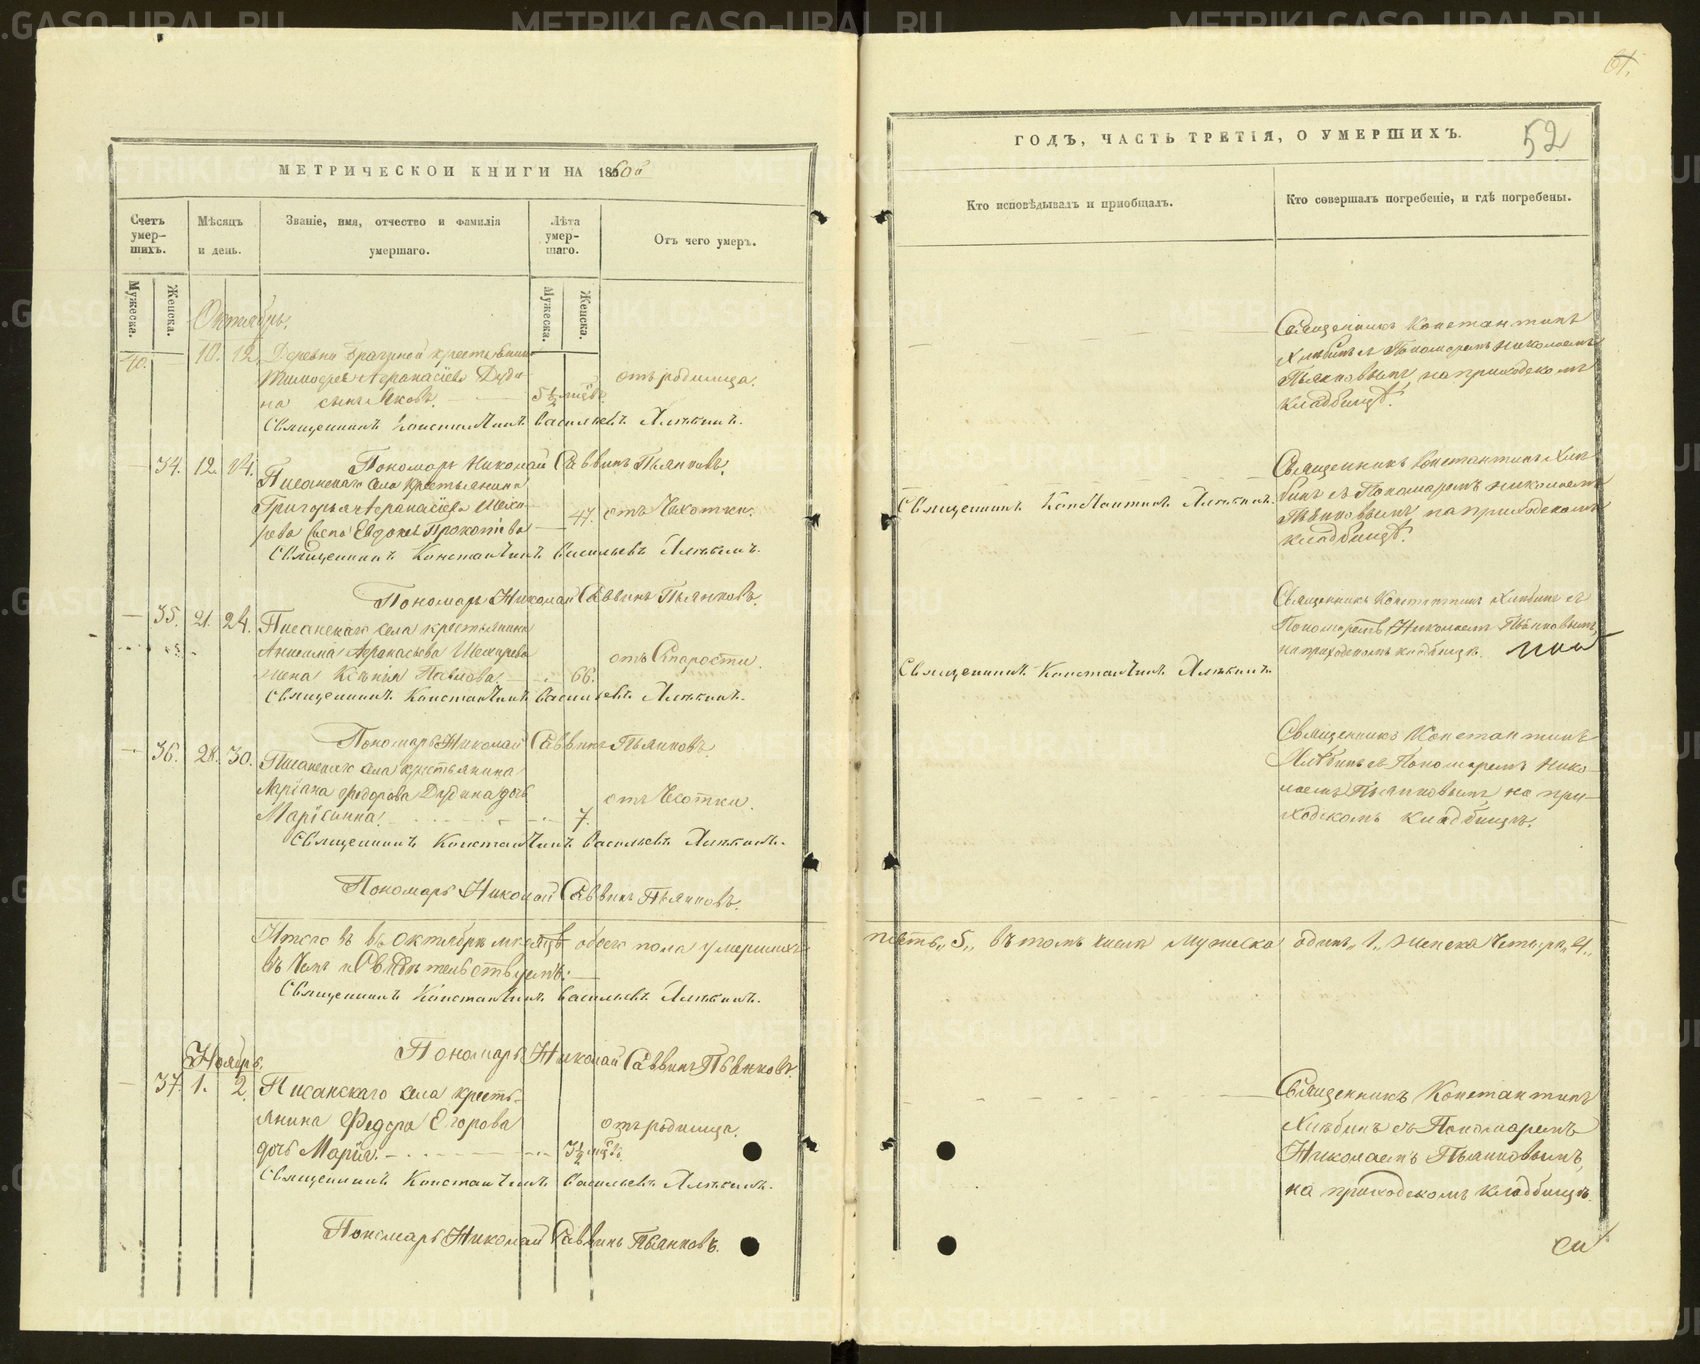 МЕТРИЧЕСКОЙ КНИГИ НА 1860й
Счетъ умер-шихъ.
Мѣсяцъ и день.
Званіе, имя, отчество и фамилія умершаго.
Лѣта умер-шаго.
Отъ чего умеръ.
Мужеска.
Женска.
Мужеска.
Женска.
Октябрь.
40. 10. 12. Деревни Брагиной крестьянина
Тимофея Афанасіева Дуди-
на сынъ Яковъ. 5½ мѣся. отъ родимца.
Священникъ Константинъ Васильевъ Хлѣбинъ.
Пономарь Николай Саввинъ Пьянковъ.
34. 12. 14. Писанскаго села крестьянина
Григорья Афанасіева
Евдокія Прокопіева 47. отъ Чахотки.
Священникъ Константинъ Васильевъ Хлѣбинъ.
Пономарь Николай Саввинъ Пьянковъ.
35. 21. 24. Писанскаго села крестьянина
Афанасьева
жена Ксенія Павлова. 66. отъ Старости.
Священникъ Константинъ Васильевъ Хлѣбинъ.
Пономарь Николай Саввинъ Пьянковъ.
36. 28. 30. Писанскаго села крестьянина
Федорова Дудина дочь
Маріанна. 7. отъ Чесотки.
Священникъ Константинъ Васильевъ Хлѣбинъ.
Пономарь Николай Саввинъ Пьянковъ.
Итого въ Октябрѣ мѣсяцѣ обоего пола умершихъ
въ чемъ и Свидѣтельствуемъ:
Священникъ Константинъ Васильевъ Хлѣбинъ.
Пономарь Николай Саввинъ Пьянковъ.
Ноябрь.
37. 1. 2. Писанскаго села кресть-
янина Федора Егорова
дочь Марія. 3½ мѣся. отъ родимца.
Священникъ Константинъ Васильевъ Хлѣбинъ.
Пономарь Николай Саввинъ Пьянковъ.
61.
ГОДЪ, ЧАСТЬ ТРЕТІЯ, О УМЕРШИХЪ.
52
Кто исповѣдывалъ и пріобщалъ.
Кто совершалъ погребеніе, и гдѣ погребены.
Священникъ Константинъ
Хлѣбинъ съ Пономаремъ Николаемъ
Пьянковымъ на приходскомъ
кладбищѣ.
Священникъ Константинъ Хлѣбинъ.
Священникъ Константинъ Хлѣ-
бинъ съ Пономаремъ Николаемъ
Пьянковымъ на приходскомъ
кладбищѣ.
Священникъ Константинъ Хлѣбинъ.
Священникъ Константинъ Хлѣбинъ съ
Пономаремъ Николаемъ Пьянковымъ,
на приходскомъ кладбищѣ.
Священникъ Константинъ
Хлѣбинъ съ Пономаремъ Нико-
лаемъ Пьянковымъ, на при-
ходскомъ кладбищѣ.
пять „5„ въ томъ числѣ мужеска одинъ „1„ женска Четыре „4„
Священникъ Константинъ
Хлѣбинъ съ Пономаремъ
Николаемъ Пьянковымъ,
на приходскомъ кладбищѣ.
METRIKI.GASO-URAL.RU